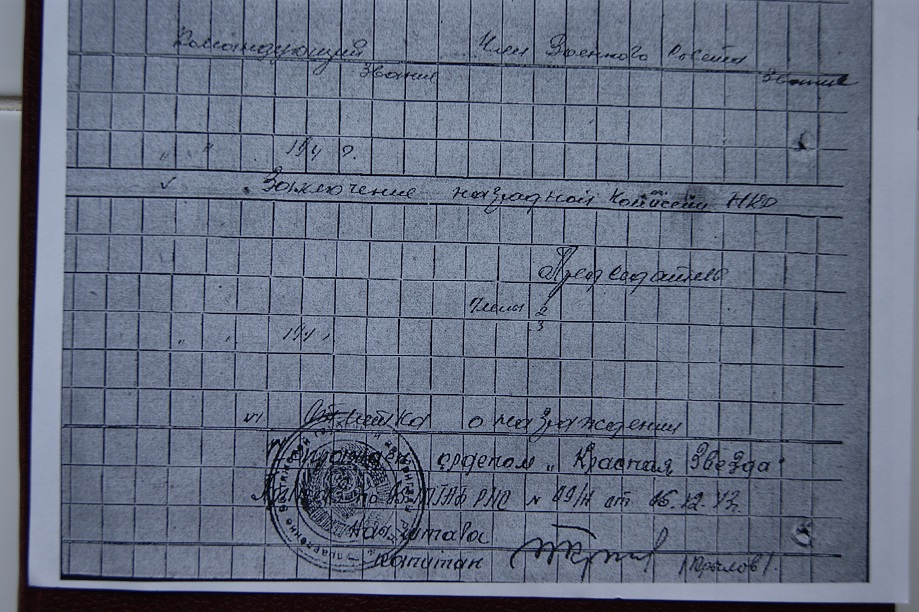 Командующий Член Военного Совета
звание звание
" " 194 г.
V. Заключение наградной комиссии НКО
Председатель
Члены 2
3
" " 194 г.
VI Отметка о награждении
орденом „Красная Звезда"
от 16.12.43
Нач. штаба
капитан /Крылов/.